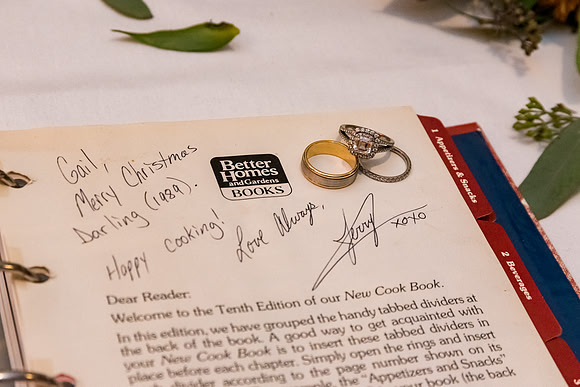 Gail,
Merry Christmas
Darling (1989).
Happy Cooking!
Love Always,
Jerry xoxo
Better
Homes
and Gardens
BOOKS
Dear Reader:
Welcome to the Tenth Edition of our New Cook Book.
In this edition, we have grouped the handy tabbed dividers at
the back of the book. A good way to get acquainted with
your New Cook Book is to insert these tabbed dividers in
place before each chapter. Simply open the rings and insert
divider according to the page number shown on its
the "Appetizers and Snacks"
book (the back
1 Appetizers & Snacks
2 Beverages